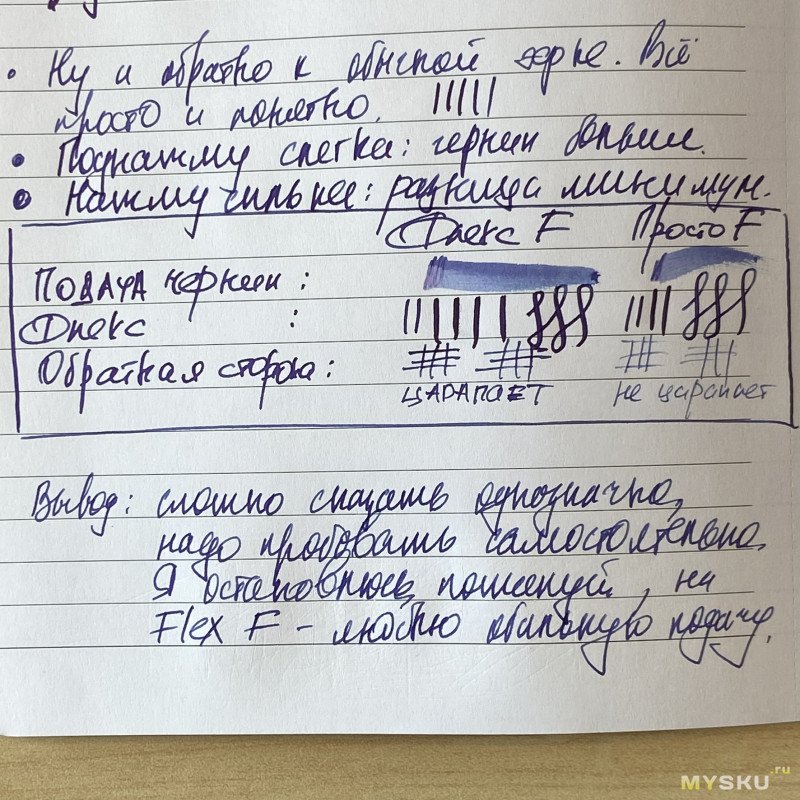 • Ну и обратно к обычной ручке. Всё
просто и понятно.
• Поднажму слегка: чернил больше.
• Нажму сильнее: разница минимум.
Флекс F Просто F
ПОДАЧА чернил :
Флекс :
Обратная сторона :
ЦАРАПАЕТ не царапает
Вывод: сложно сказать однозначно,
надо пробовать самостоятельно.
Я остановлюсь, пожалуй, на
Flex F - люблю обильную подачу.
MYSKU.ru